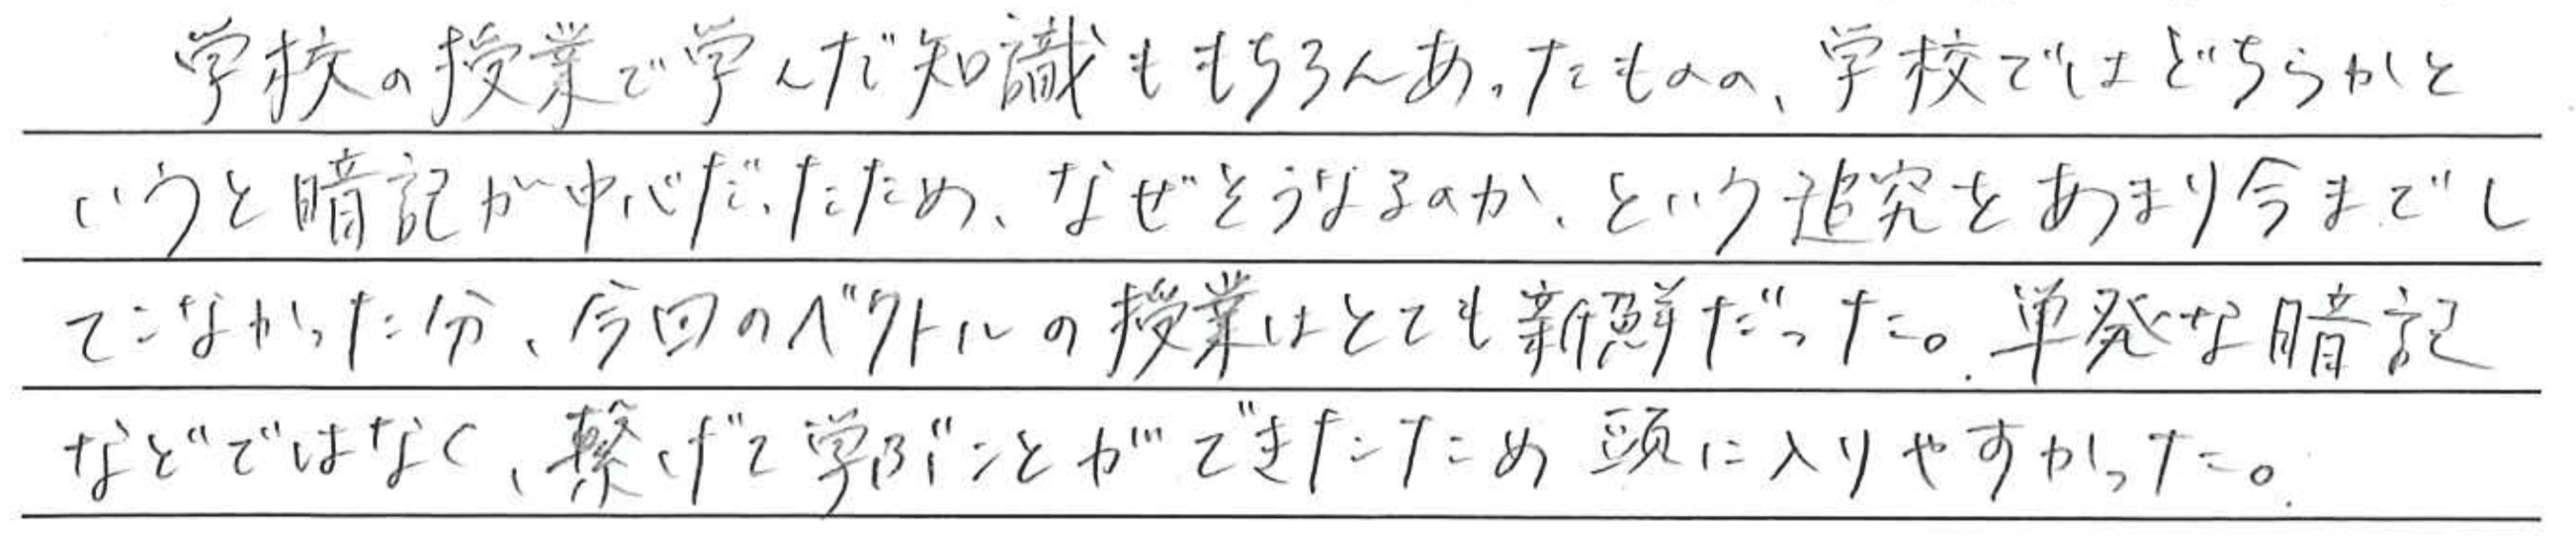 学校の授業で学んだ知識ももちろんあったものの、学校ではどちらかと
いうと暗記が中心だったため、なぜそうなるのか、という追究をあまり今までし
てこなかった分、今回のベクトルの授業はとても新鮮だった。単発な暗記
などではなく、繋げて学ぶことができたため頭に入りやすかった。